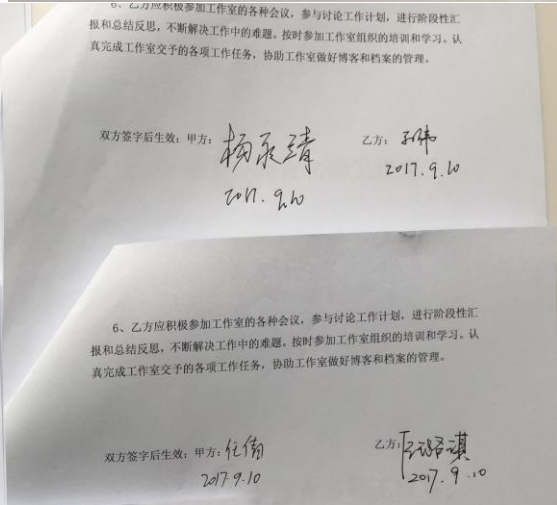 6、乙方应积极参加工作室的各种会议，参与讨论工作计划，进行阶段性汇
报和总结反思，不断解决工作中的难题。按时参加工作室组织的培训和学习。认
真完成工作室交予的各项工作任务，协助工作室做好博客和档案的管理。
双方签字后生效：甲方：杨永靖 乙方：孙伟
2017.9.10 2017.9.10
6、乙方应积极参加工作室的各种会议，参与讨论工作计划，进行阶段性汇
报和总结反思，不断解决工作中的难题。按时参加工作室组织的培训和学习。认
真完成工作室交予的各项工作任务，协助工作室做好博客和档案的管理。
双方签字后生效：甲方：任倩 乙方：
2017.9.10 2017.9.10